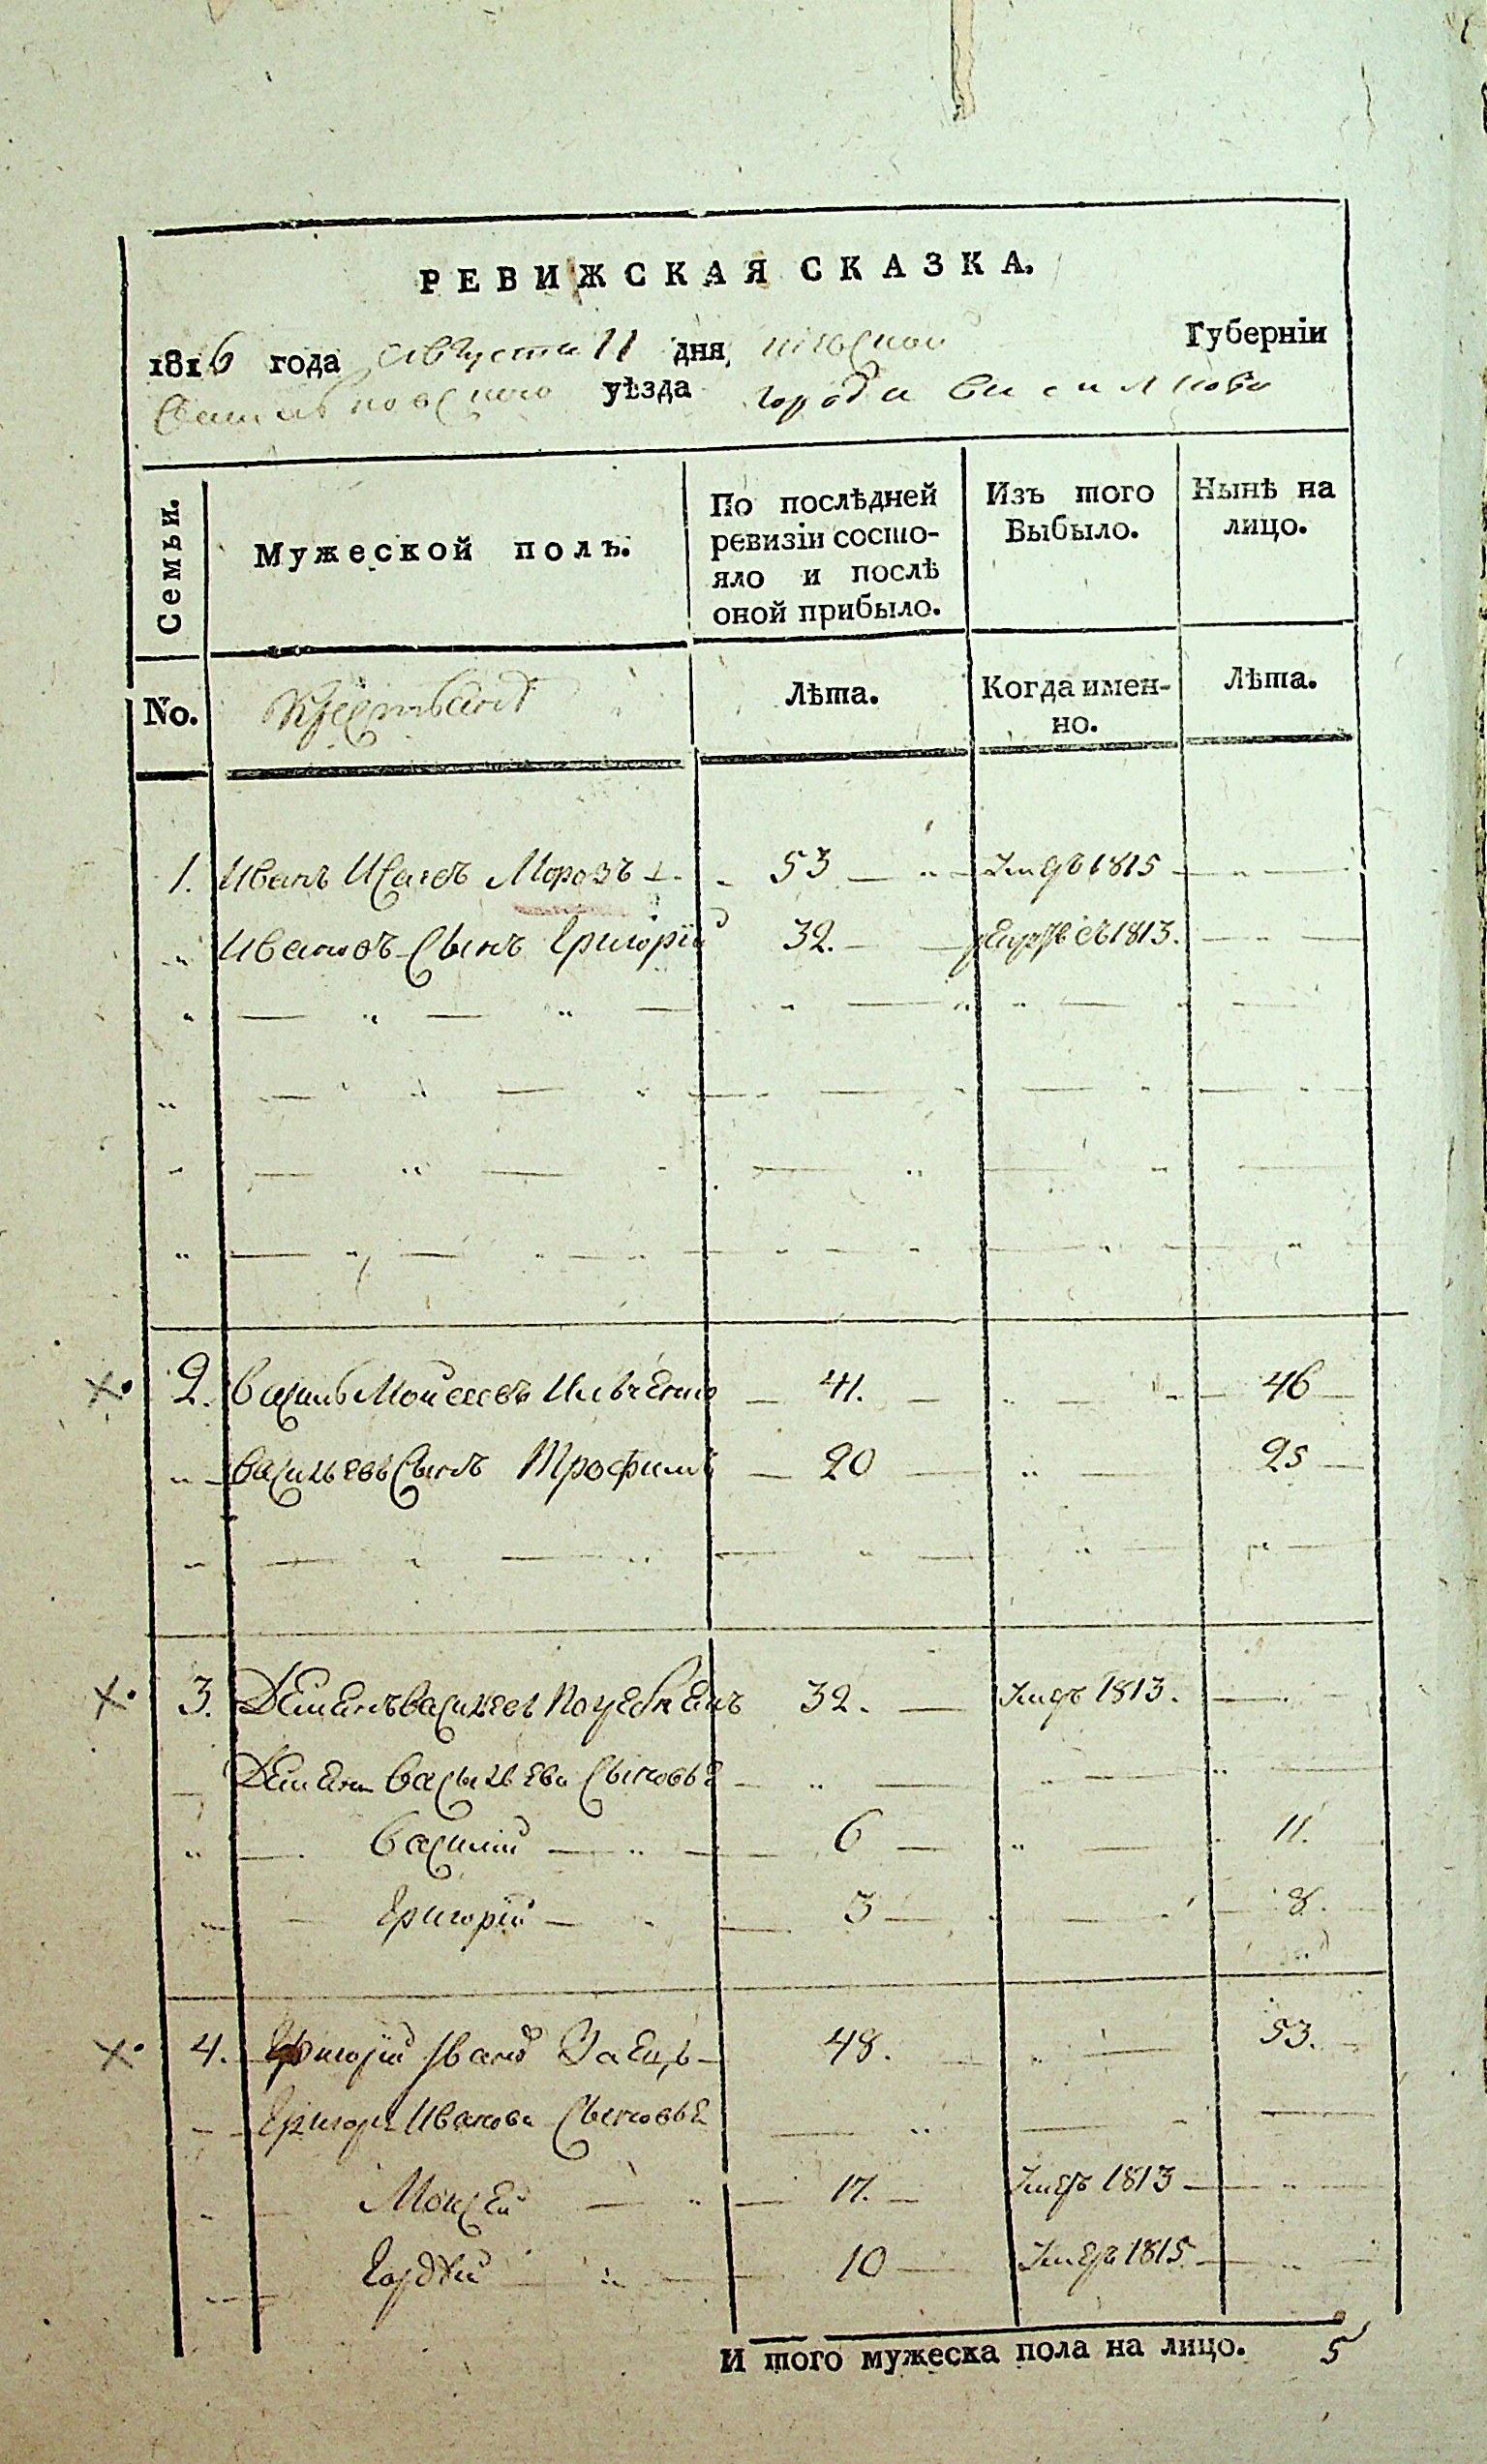 РЕВИЖСКАЯ СКАЗКА.
1816 года Августа 11 дня, Киевской Губерніи
Васильковского уѣзда города Василкова
Семьи.
Мужеской полъ.
По послѣдней
ревизіи состо-
яло и послѣ
оной прибыло.
Изъ того
Выбыло.
Нынѣ на
лицо.
No.
Лѣта.
Когда имен-
но.
Лѣта.
1. Иванъ Исаевъ Морозъ 53 Умеръ 1815
Ивановъ Сынъ Григорій 32. 1813.
2. Василь Мойсеевъ Ильченко 41. 46
Васильевъ Сынъ Трофимъ 20 25
3. Деменъ Васильевъ 32. Умеръ 1813.
Демена Васильева Сыновья
Василій 6 11.
Григорій 3 8.
4. Григорій Ивановъ Заецъ 48. 53.
Григорія Иванова Сыновья
Мойсей 17. Умеръ 1813
Гордѣй 10 Умеръ 1815
И того мужеска пола на лицо. 5